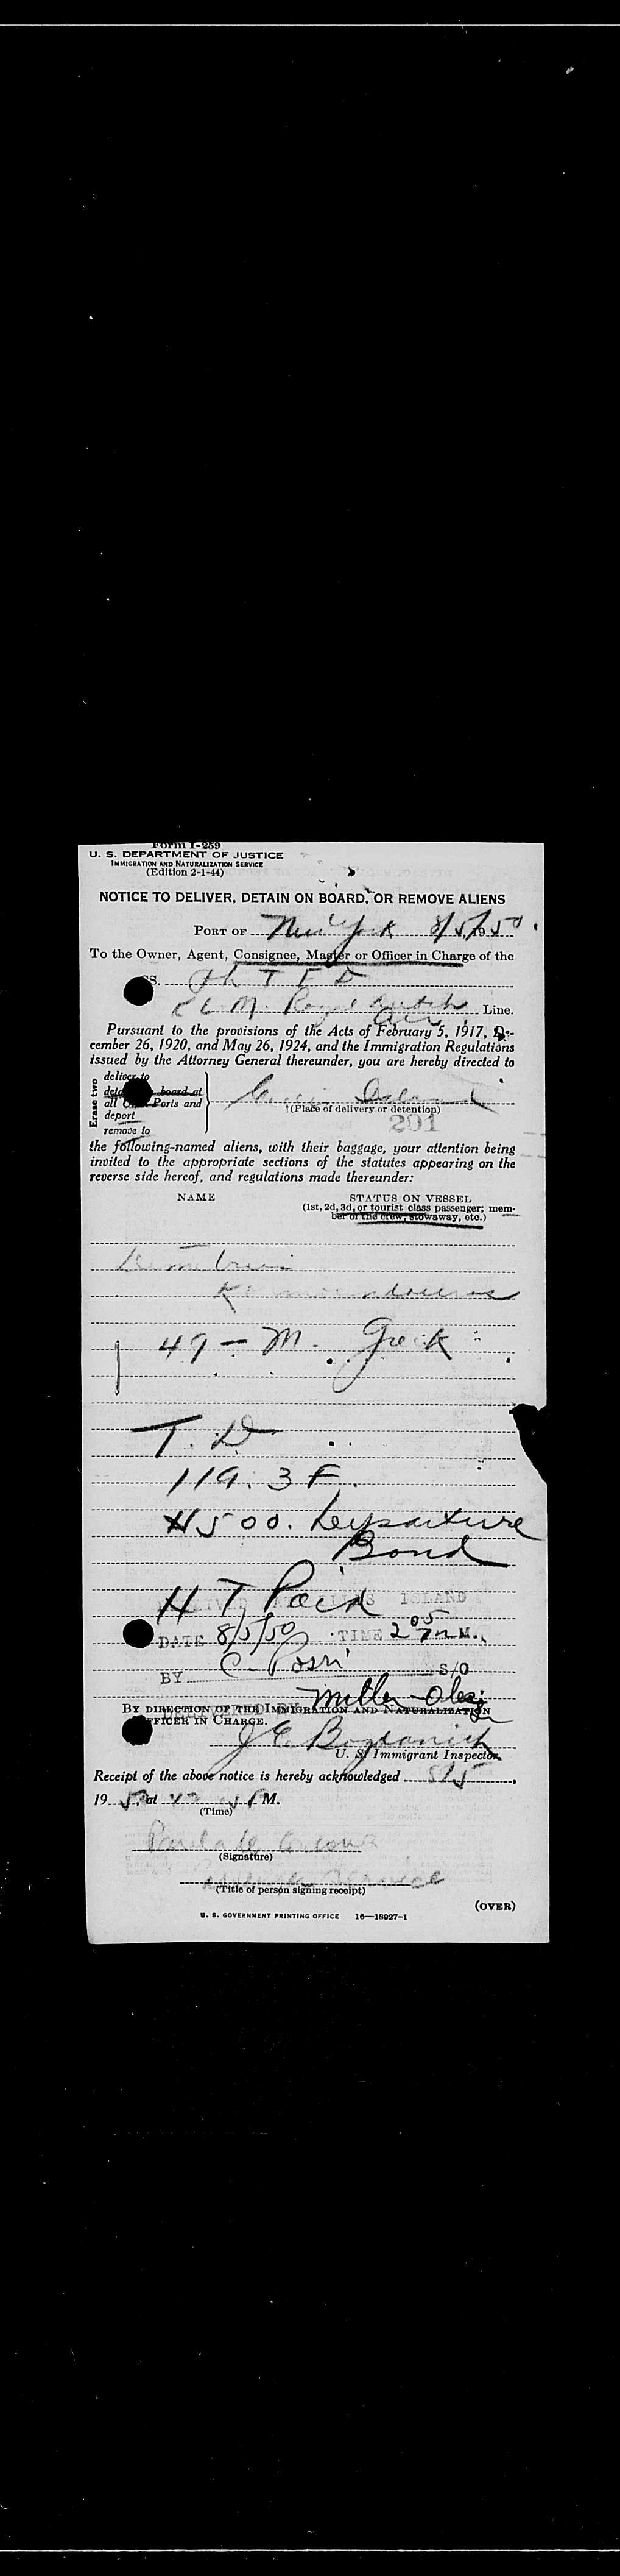 Form I-259
U. S. DEPARTMENT OF JUSTICE
IMMIGRATION AND NATURALIZATION SERVICE
(Edition 2-1-44)
NOTICE TO DELIVER, DETAIN ON BOARD, OR REMOVE ALIENS
PORT OF New York 8/5/1950.
To the Owner, Agent, Consignee, Master or Officer in Charge of the
SS. Ph T F D
K L M Royal Dutch Air Line.
Pursuant to the provisions of the Acts of February 5, 1917, De-
cember 26, 1920, and May 26, 1924, and the Immigration Regulations
issued by the Attorney General thereunder, you are hereby directed to
Erase two
deliver to
board at
all Ports and
deport
remove to
Ellis Island
†(Place of delivery or detention)
201
the following-named aliens, with their baggage, your attention being
invited to the appropriate sections of the statutes appearing on the
reverse side hereof, and regulations made thereunder:
NAME STATUS ON VESSEL
(1st, 2d, 3d, or tourist class passenger; mem-
ber of the crew, stowaway, etc.)
49 - M. Greek
T. D
119. 3 F.
$500. Departure
Bond
H T Paid
ISLAND
DATE 8/5/50 TIME 2 05 P M.
BY C. S/O
Miller
BY DIRECTION OF THE IMMIGRATION AND NATURALIZATION
OFFICER IN CHARGE.
J E Bogdanich
U. S. Immigrant Inspector.
Receipt of the above notice is hereby acknowledged 8/5,
19 50, at M.
(Time)
(Signature)
Service
(Title of person signing receipt)
(OVER)
U. S. GOVERNMENT PRINTING OFFICE 16—18927-1